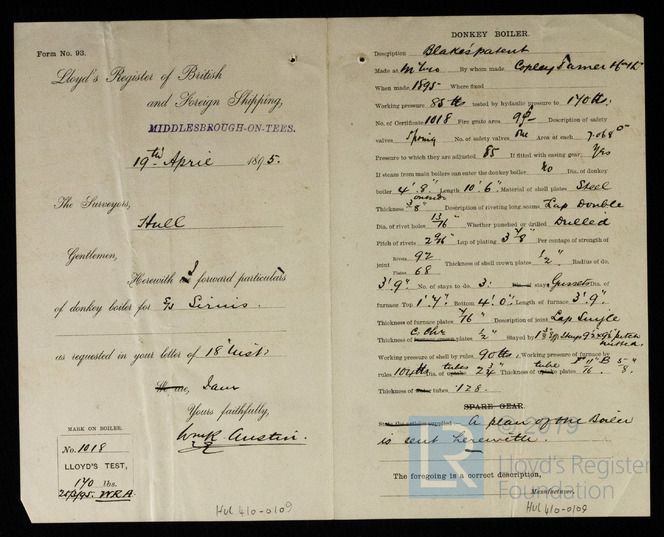 Form No. 93.
Lloyd's Register of British
and Foreign Shipping,
MIDDLESBROUGH-ON-TEES.
19th April 1895.
The Surveyors,
Hull
Gentlemen,
Herewith I forward particulars
of donkey boiler for S/s Sirius.
as requested in your letter of 18th inst:
We are, I am
Yours faithfully,
Wm R Austin.
MARK ON BOILER.
No. 1018
LLOYD'S TEST,
140 lbs.
25/3/95. W.R.A.
Hul 410-0109
DONKEY BOILER.
Description Blake's patent
Made at M'bro By whom made Copley Turner &
When made 1895 Where fixed
Working pressure 85 lbs tested by hydraulic pressure to 140 lbs:
No. of Certificate 1018 Fire grate area 9 Description of safety
valves Spring No. of safety valves One Area of each 7.068
Pressure to which they are adjusted 85 If fitted with easing gear Yes
If steam from main boilers can enter the donkey boiler No Dia. of donkey
boiler 4'.8" Length 10'.6" Material of shell plates Steel
Thickness 3/8" Description of riveting long. seams Lap Double
Dia. of rivet holes 13/16" Whether punched or drilled Drilled
Pitch of rivets 2 9/16" Lap of plating 3 7/8" Per centage of strength of
joint Rivets 92 Plates 68 Thickness of shell crown plates 1/2" Radius of do.
3'9" No. of stays to do. 3: Dia. of stays Gussets Dia. of
furnace Top 1'.7" Bottom 4'.0" Length of furnace 3'.9"
Thickness of furnace plates 7/16" Description of joint Lap Single
Thickness of furnace crown plates C. Chr 1/2" Stayed by 1 3/8" Stays 9½"x9½" pitch
nutted.
Working pressure of shell by rules 90 lbs. Working pressure of furnace by
rules 104 lbs Dia. of uptake tubes 2 3/4" Thickness of uptake tube plates 7/16 5/8"
Thickness of water tubes 128.
SPARE GEAR.
State the articles supplied A plan of the Boiler
is sent herewith.
The foregoing is a correct description,
Manufacturer.
Hul 410-0109
© 2019
LR
Lloyd's Register
Foundation